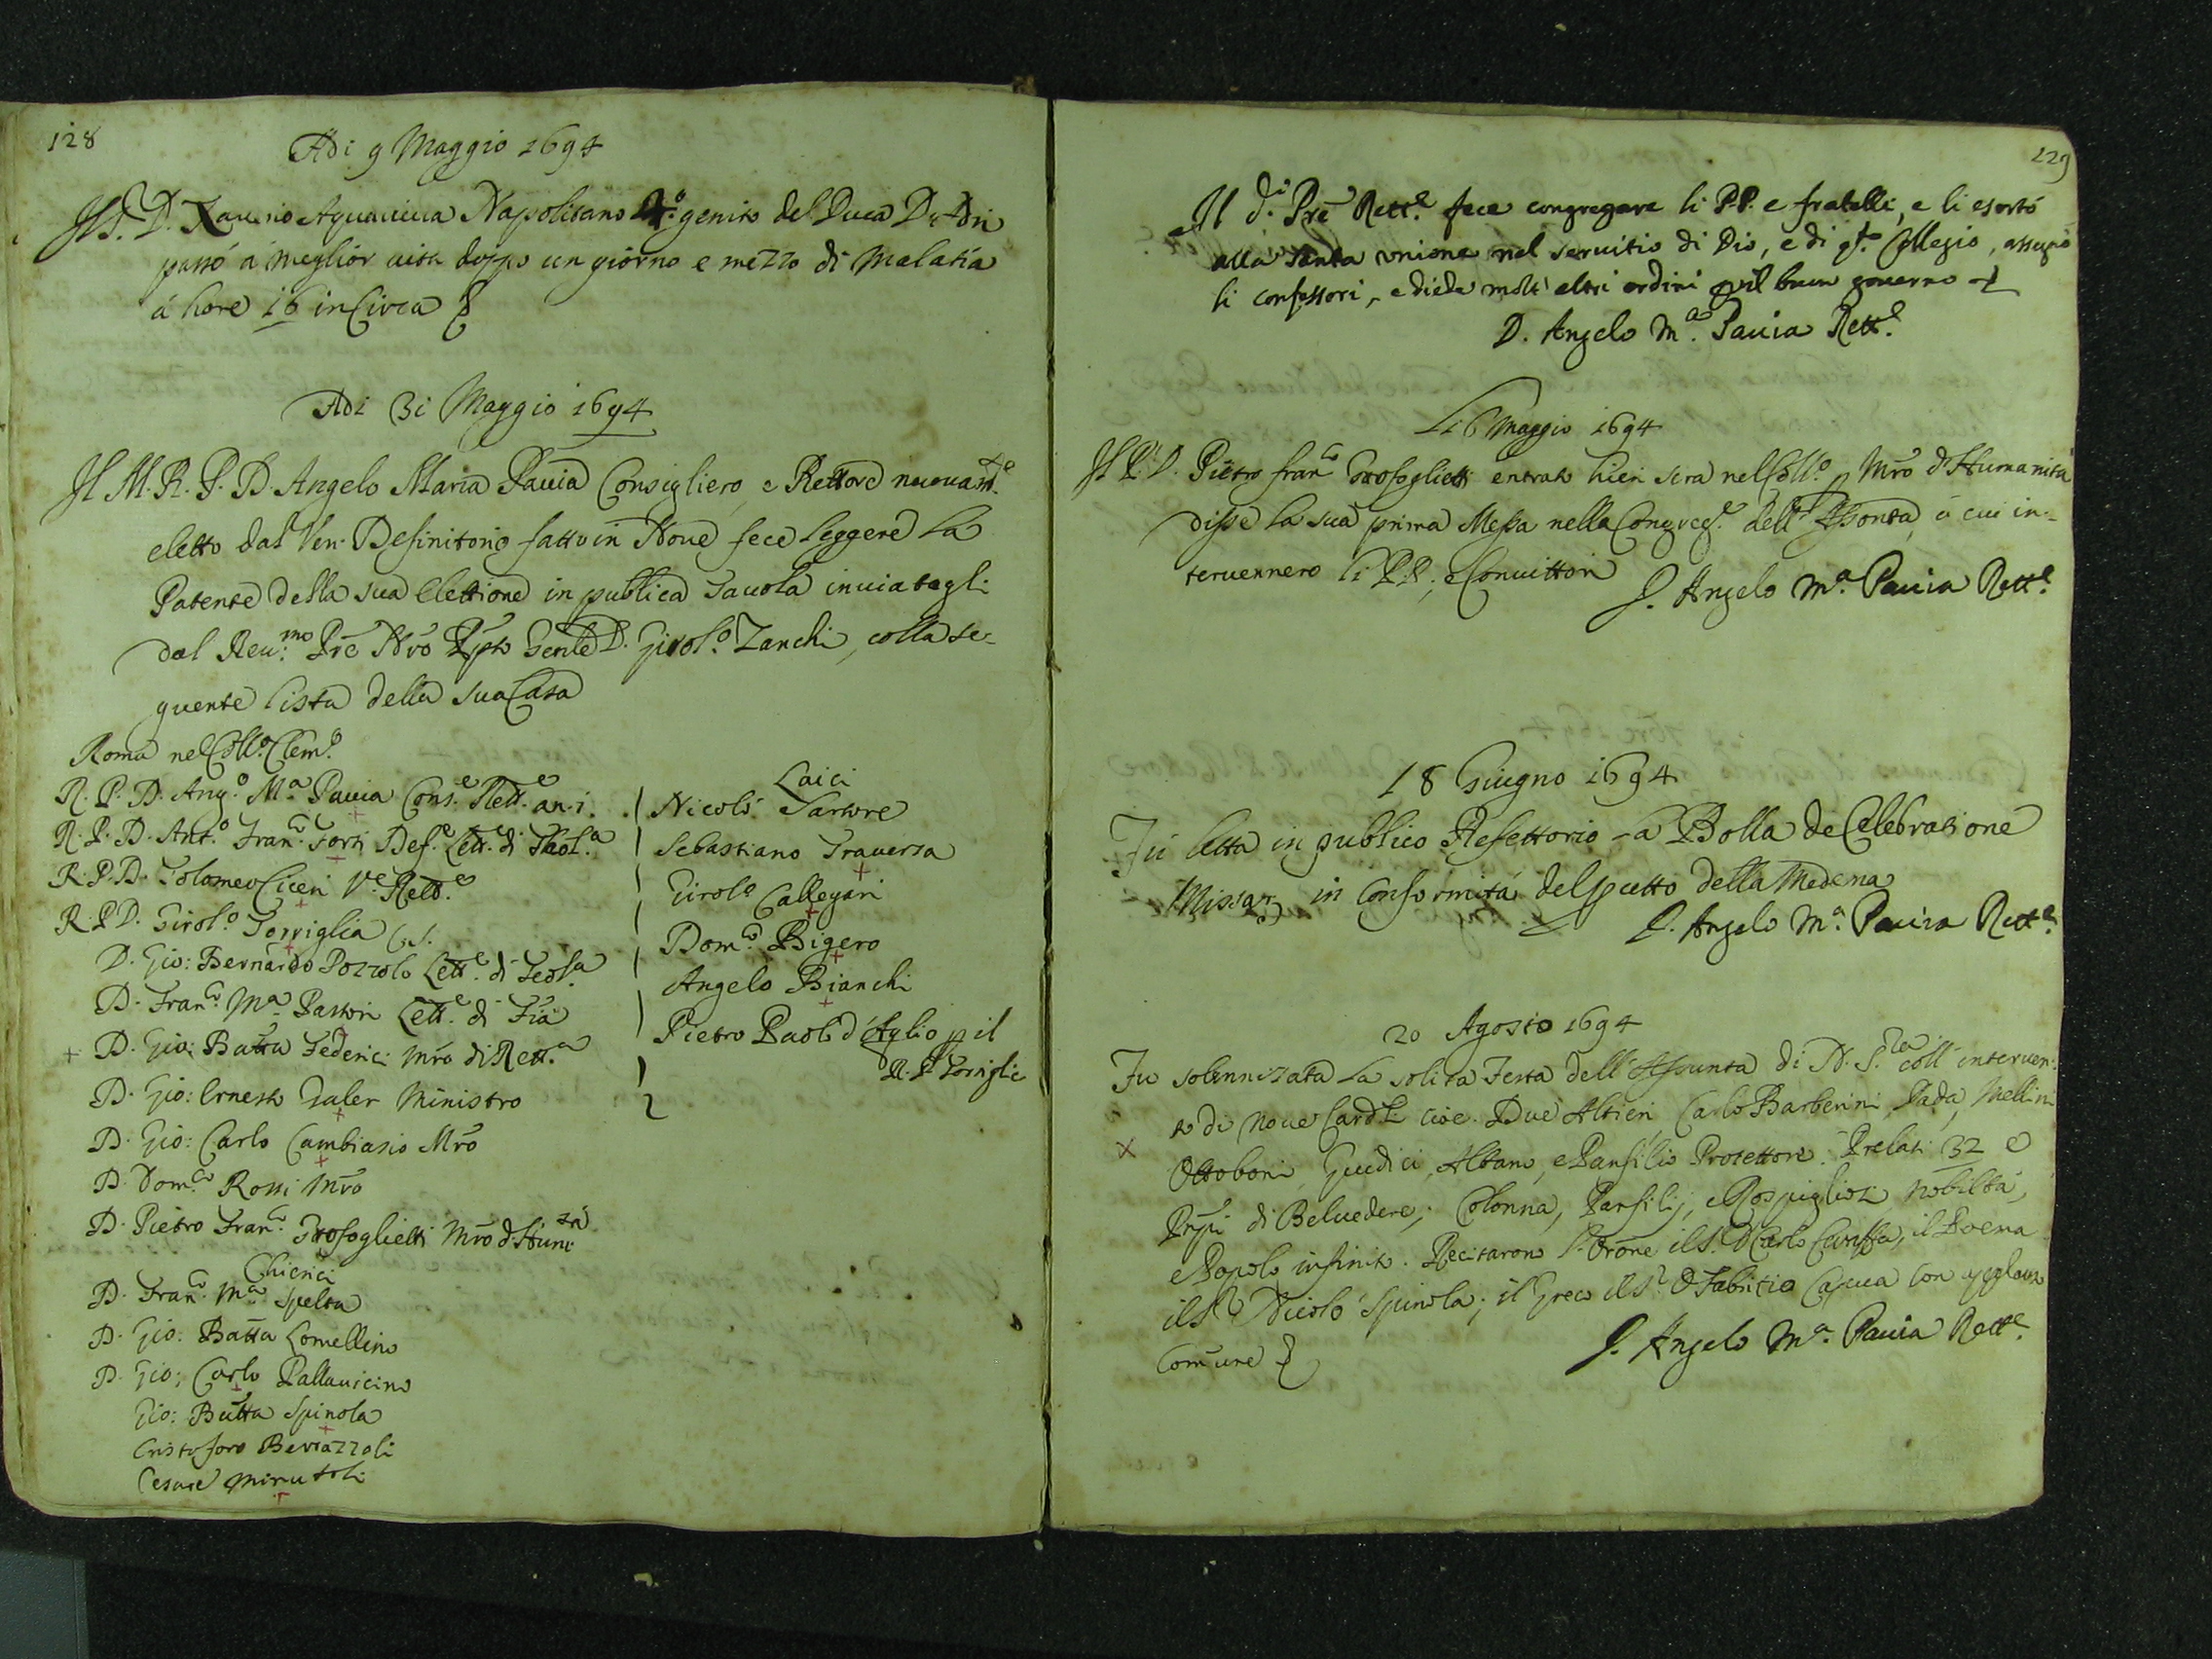 128
Adi 9 Maggio 1694
Il S. D. Xaverio Aquauiua Napolitano 4.º genito del Duca D'Adri
passò á meglior uita doppo un giorno e mezzo di malatia
á hore 16 in Circa
Adi 31 Maggio 1694
Il M. R. P. D. Angelo Maria Pauia Consigliero, e Rettore nuouam.te
eletto dal Ven. Definitorio fatto in Noue fece leggere la
Patente della sua elettione in publica Tauola inuiatagli
dal Reu.mo Prē Nrō Gente D. Girol.º Zanchi, colla se-
guente lista della sua Casa
Roma nel Coll.º Clem.º
R. P. D. Ang.º M.a Pauia Cons.e Rett.e an. 1.
R. P. D. Ant.º Fran.co Torti Def.e Lett. di Theol.a
R. P. D. Tolomeo Ciceri V.e Rett.e
R. P. D. Girol.º Torriglia C. S.
D. Gio: Bernardo Pozzolo Lett.e di Teol.a
D. Fran.co M.a Pastori Lett.e di Fia
+ D. Gio: Batta Federici Mrō di Rett.a
D. Gio: Ernesto Galer Ministro
D. Gio: Carlo Cambiasio Mrō
D. Dom.co Rossi Mrō
D. Pietro Fran.co Grosoglietti Mrō d'Hum.tà
Chierici
D. Fran.co M.a Spelta
D. Gio: Batta Lomellino
D. Gio: Carlo Pallauicino
Gio: Batta Spinola
Cristoforo Beuiazzoli
Cesare Minutoli
Laici
Nicolò Sartore
Sebastiano Trauersa
Girol.º Callegari
Dom.co Bigero
Angelo Bianchi
Pietro Paolo d'Aglio p il
R. P. Torriglia
129
Il d.º Prē Rett.e fece congregare li P.P. e fratelli, e li esortò
alla santa unione nel seruitio di Dio, e di q.to Collegio, assegnò
li confessori, e diede molti altri ordini p il buon gouerno
D. Angelo M.a Pauia Rett.e
Li 6 Maggio 1694
Il P. D. Pietro Fran.co Grosoglietti entrato hieri sera nel Coll.º p Mrō d'Humanità
disse la sua prima Messa nella Congreg.e dell'Assonta, á cui in-
teruennero li P.P., e Conuittori
D. Angelo M.a Pauia Rett.e
18 Giugno 1694
Fù letta in publico Refettorio la Bolla de Celebratione
Missar in conformità del della Medema
D. Angelo M.a Pauia Rett.e
20 Agosto 1694
Fu solennizata la solita Festa dell'Assunta di N. S.ra coll'interuen-
to di noue Card.li cioe. Due Altieri, Carlo Barberini, Dada, Mellini
Ottoboni, Giudici, Albano, e Panfilio Protettore. Prelati 32 e
Prnpi di Beluedere, Colonna, Panfilij, e Rospigliosi nobiltà,
e Popolo infinito. Recitarono l'Orōne il S. D Carlo Caraffa, il Poema
il S.r Nicolò Spinola; il Greco il S.r D Fabritio Capua con applauso
Comune
D. Angelo M.a Pauia Rett.e